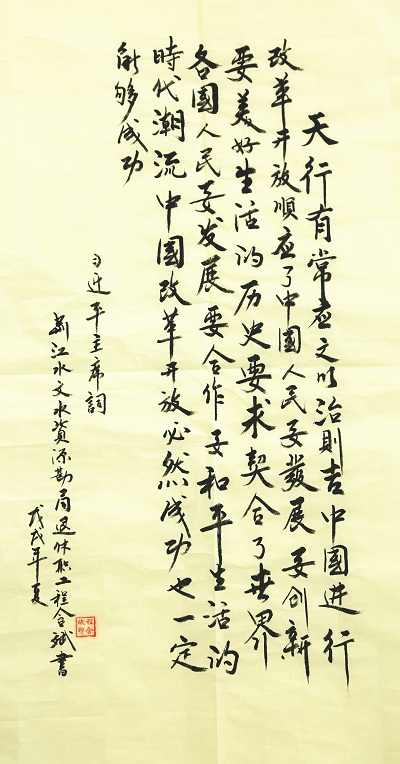 天行有常應之以治則吉中國進行
改革开放順應了中國人民要發展要创新
要美好生活的历史要求契合了世界
各國人民要发展要合作要和平生活的
時代潮流中國改革开放必然成功也一定
能够成功
习近平主席詞
荆江水文水資源勘局退休职工程合斌書
戊戌年夏
程合斌印